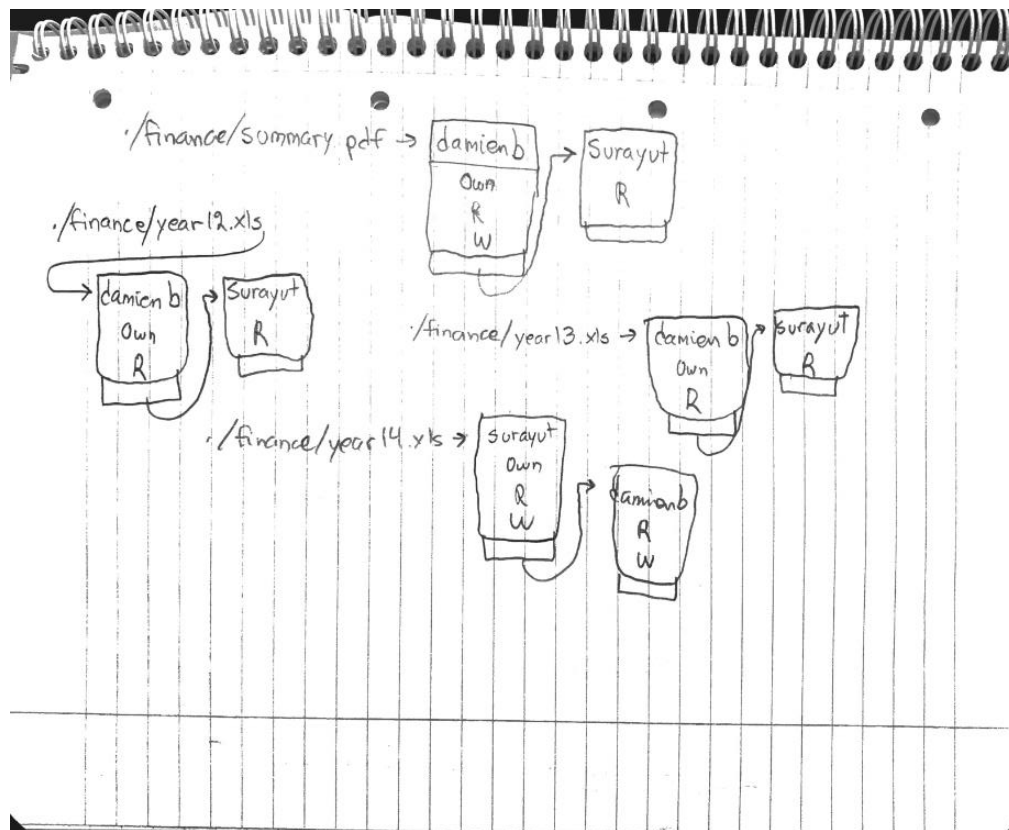 ./finance/summary.pdf → damien b
Own
R
W
Surayut
R
./finance/year12.xls
damien b
Own
R
Surayut
R
./finance/year13.xls → damien b
Own
R
surayut
R
./finance/year14.xls → surayut
Own
R
W
damien b
R
W